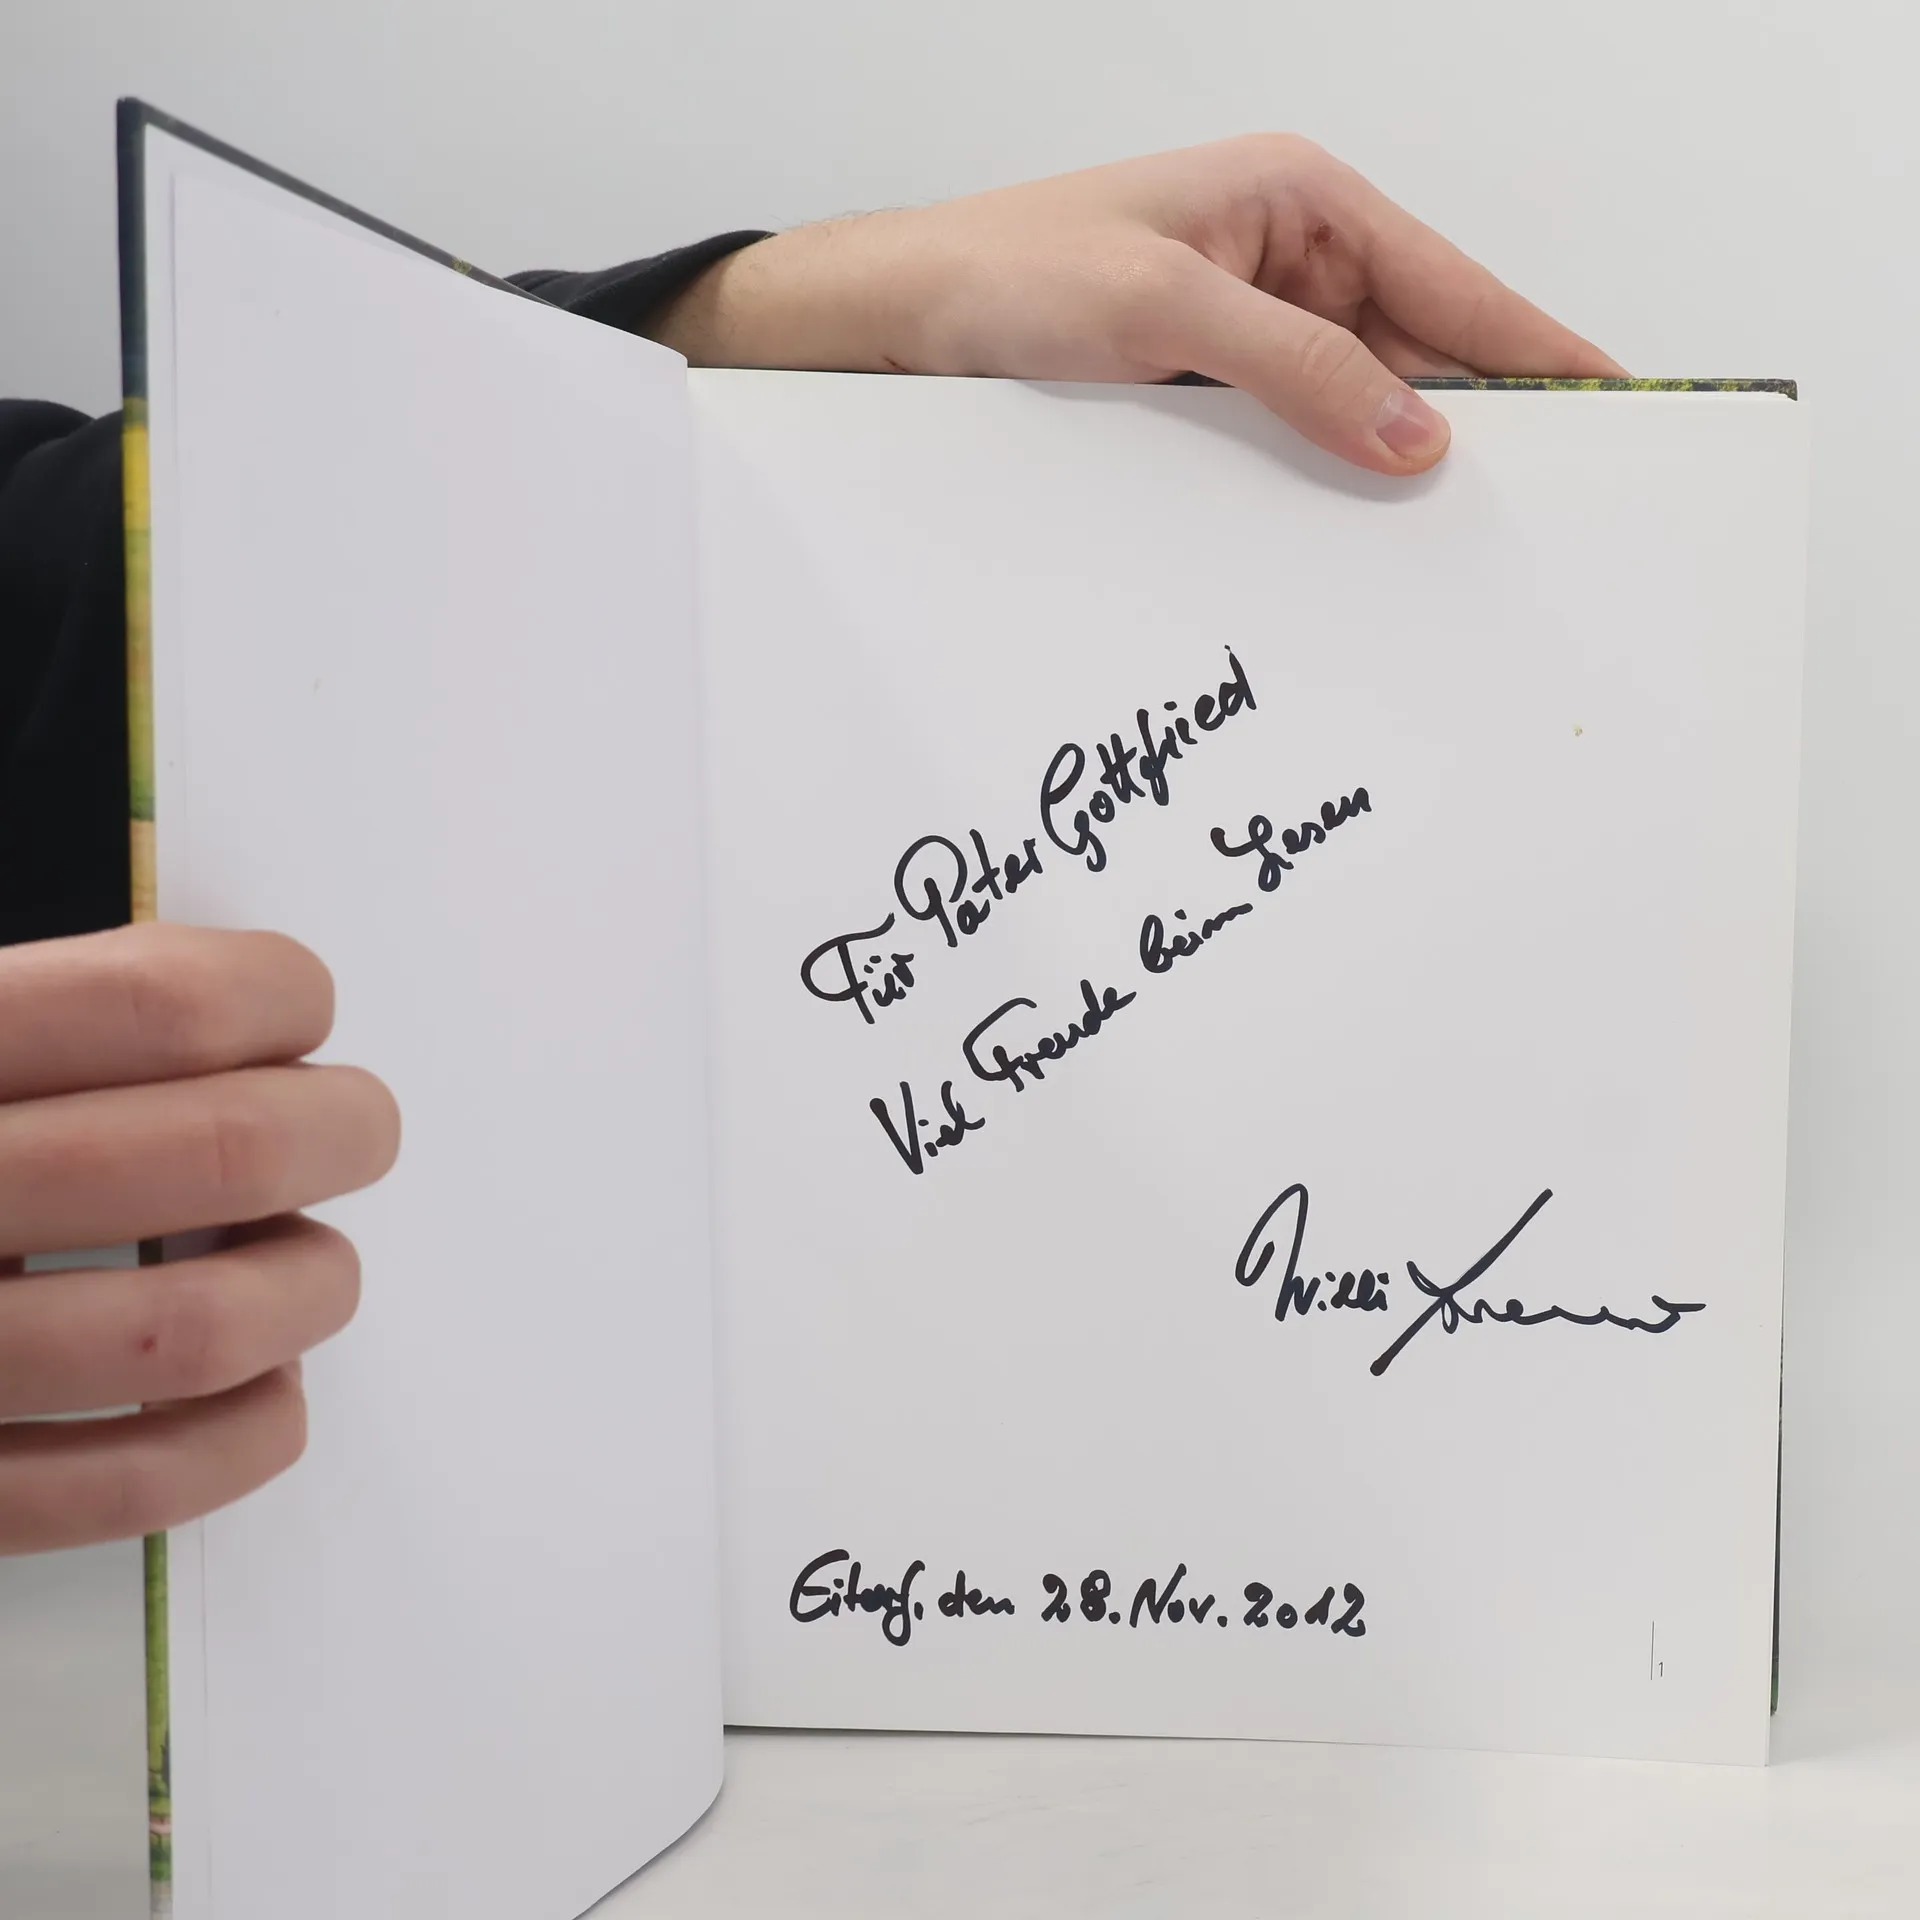 Für Pater Gottfried
Viel Freude beim Lesen
Willi
Eitorf, den 28. Nov. 2012
1